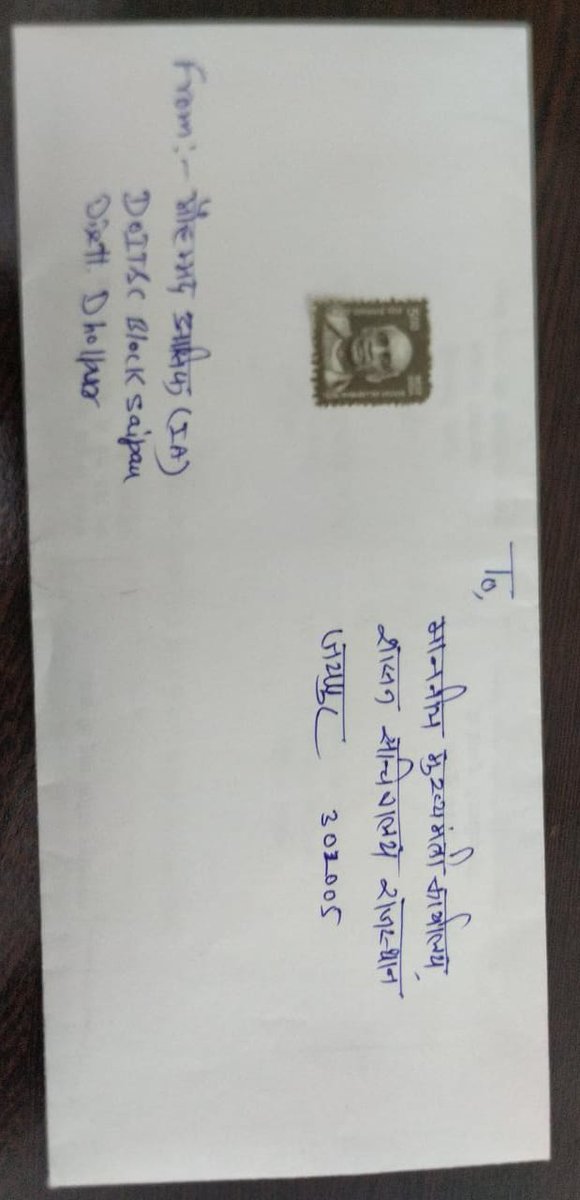 From :- मोहम्मद आबिद (IA)
DoIT&C Block Saipau
Distt. Dholpur
5.00
To,
माननीय मुख्यमंत्री कार्यालय,
शासन सचिवालय राजस्थान
जयपुर 302005